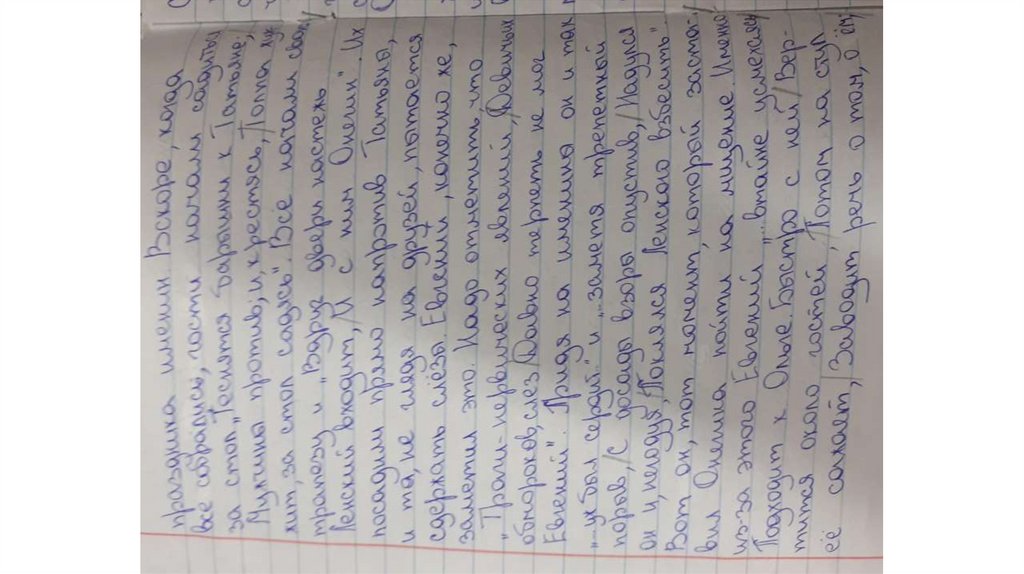 праздника именин. Вскоре, когда
все собрались, гости начали садиться
за стол „Теснятся барышни к Татьяне,/
Мужчины против; и, крестясь,/Толпа жуж-
жит, за стол садясь". Все начали свою
трапезу и „Вдруг двери настежь
Ленский входит,/И с ним Онегин". Их
посадили прямо напротив Татьяны,
и та, не глядя на друзей, пытается
сдержать слёзы. Евгений, конечно же,
заметил это. Надо отметить, что
„Траги-нервических явлений,/Девичьих
обмороков, слез/Давно терпеть не мог
Евгений". Придя на именины он и так
„-уж был сердит" и „заметя трепетный
порыв,/С досады взоры опустив,/Надулся
он и, негодуя,/Поклялся Ленского взбесить".
Вот он, тот момент, который заста-
вил Онегина пойти на мщение. Именно
из-за этого Евгений „втайне усмехаясь,/
Подходит к Ольге. Быстро с ней/Вер-
тится около гостей,/Потом на стул
её сажает,/Заводит речь о том, о сём;